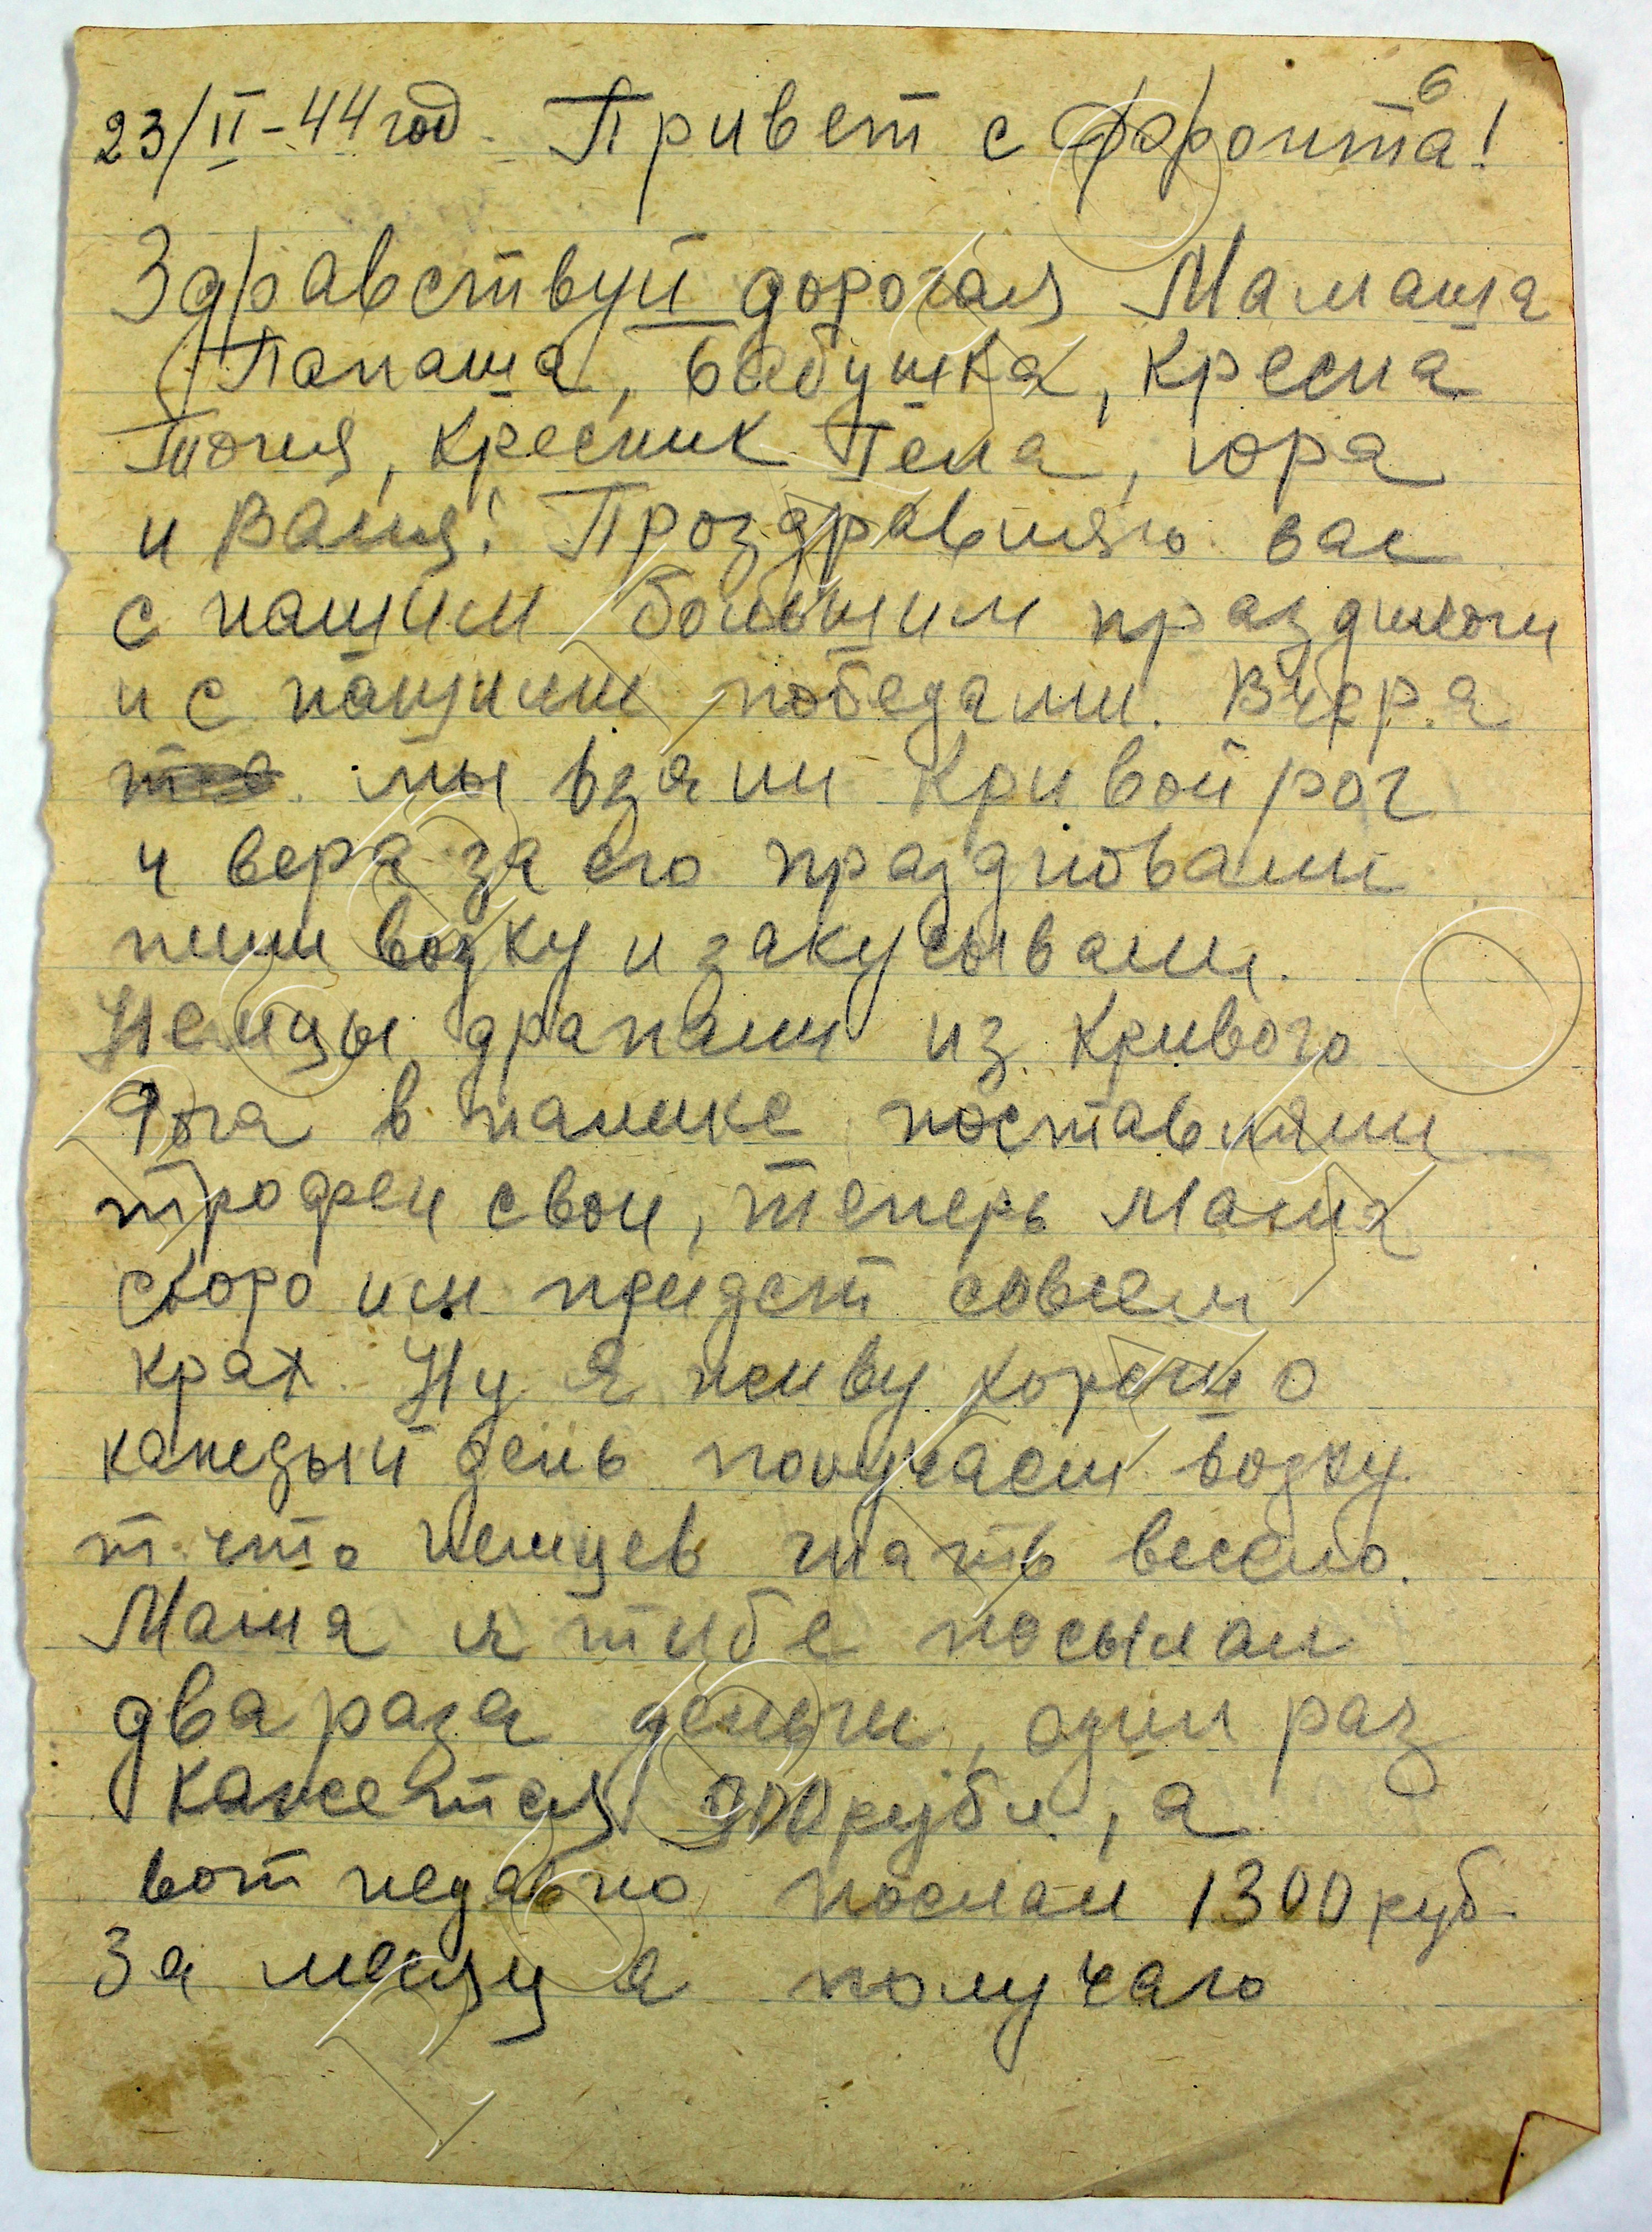 6
23/II-44 год. Привет с фронта!
Здравствуй дорогая Мамаша
Папаша, бабушка, Кресна
Тоня, Кресник Гена, Юра
и Валя! Проздравляю вас
с нашим большим праздником
и с нашими победами. Вчера
мы взяли Кривой рог
и вера за его праздновали
пили водку и закусывали.
Немцы драпали из Кривого
Рога в панике поставляли
трофеи свои, теперь Мама
скоро им придет совсем
крах. Ну я живу хорошо
каждый день получаем водку
т. что немцев гнать весело.
Мама я тибе посылал
два раза деньги, один раз
кажется 900 рубл., а
вот недавно послал 1300 руб.
За месяц я получаю